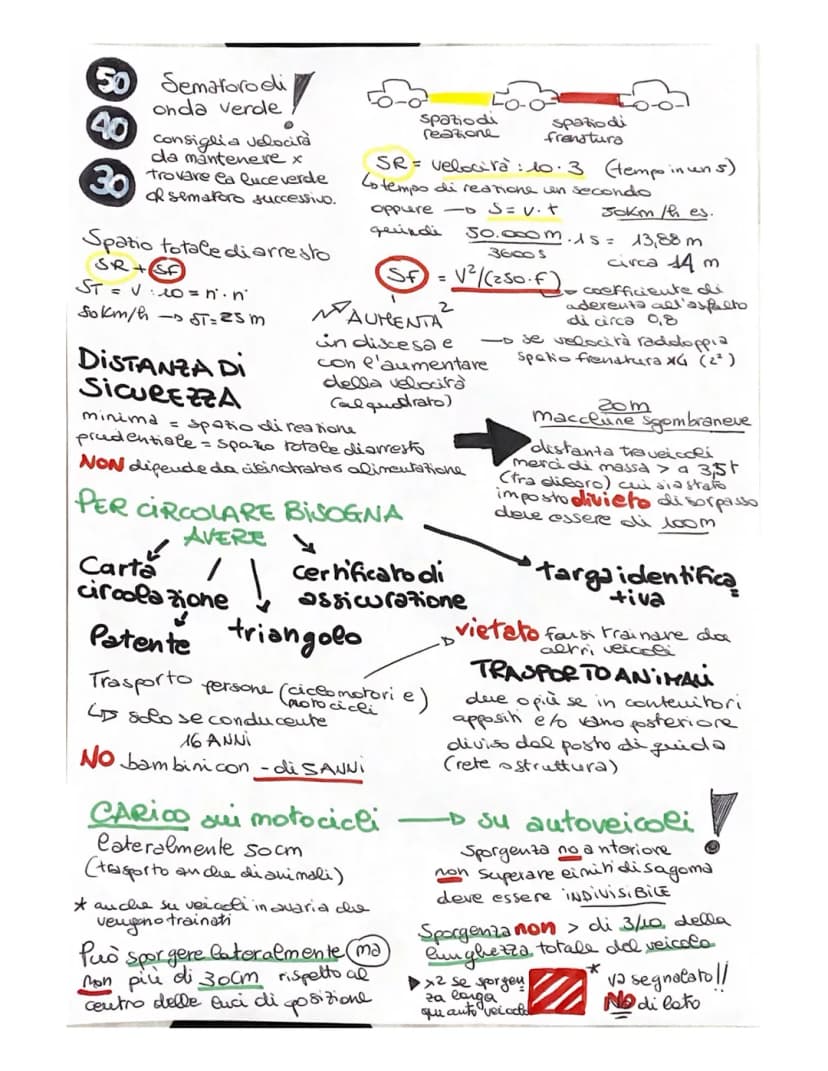 50
40
30
Semaforo di
onda verde!
consiglia velocità
da mantenere x
trovare la luce verde
al semaforo successivo.
spazio di
reazione
spazio di
frenatura
SR = velocità : 10 · 3 (tempo in un s)
↳ tempo di reazione un secondo
oppure → S = v · t 50 Km/h es.
quindi 50.000 m · 1 s = 13,88 m
3600 s
circa 14 m
Spazio totale di arresto
SR + SF
ST = V : 10 = n · n
50 Km/h → ST = 25 m
Sf = V²/(250 · f)
→ coefficiente di
aderenza all'asfalto
di circa 0,8
AUMENTA
in discesa e
con l'aumentare
della velocità
(al quadrato)
→ se velocità raddoppia
spazio frenatura x4 (2²)
DISTANZA DI
SICUREZZA
minima = spazio di reazione
prudenziale = spazio totale di arresto
NON dipende da alimentazione
20m
macchine sgombraneve
distanza tra veicoli
merci di massa > a 3,5t
(tra di loro) cui sia stato
imposto divieto di sorpasso
deve essere di 100m
PER CIRCOLARE BISOGNA
AVERE
Carta
circolazione
certificato di
assicurazione
targa identifica
tiva
Patente
triangolo
Trasporto persone (ciclomotori e)
motocicli
↳ solo se conducente
16 ANNI
NO bambini con - di 5 ANNI
vietato farsi trainare da
altri veicoli
TRASPORTO ANIMALI
due o più se in contenitori
appositi e/o vano posteriore
diviso dal posto di guida
(rete o struttura)
CARICO sui motocicli → su autoveicoli !
lateralmente 50cm
(trasporto anche di animali)
* anche su veicoli in avaria che
vengono trainati
Può sporgere lateralmente ma
non più di 30cm rispetto al
centro delle luci di posizione
Sporgenza no anteriore
non superare e limiti di sagoma
deve essere INDIVISIBILE
Sporgenza non > di 3/10 della
lunghezza totale del veicolo
x2 se sporgen
za larga
quanto veicolo
* va segnalato!!
No di lato